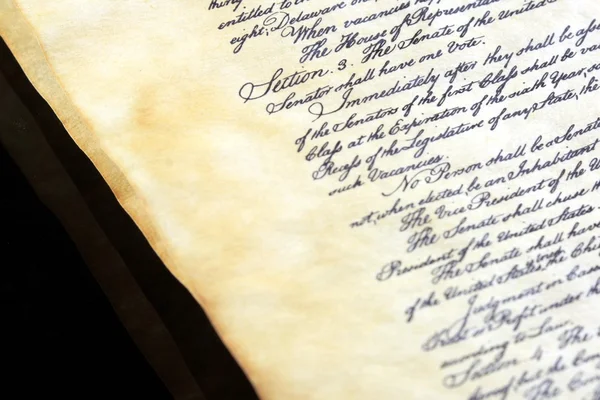 entitled to
eight, Delaware
When vacancies happen
The House of Representat
Section. 3. The Senate of the United
Senator shall have one Vote.
Immediately after they shall be asse
of the Senators of the first Class shall be vac
Class at the Expiration of the sixth Year, so
Recess of the Legislature of any State, the
such Vacancies.
No Person shall be a Senato
not, when elected, be an Inhabitant
The Vice President of the U
The Senate shall chuse th
President of the United States
The Senate shall have
of the United States, the Chi
Judgment in Cases
Trust or Profit under the
according to Law.
Section. 4. The